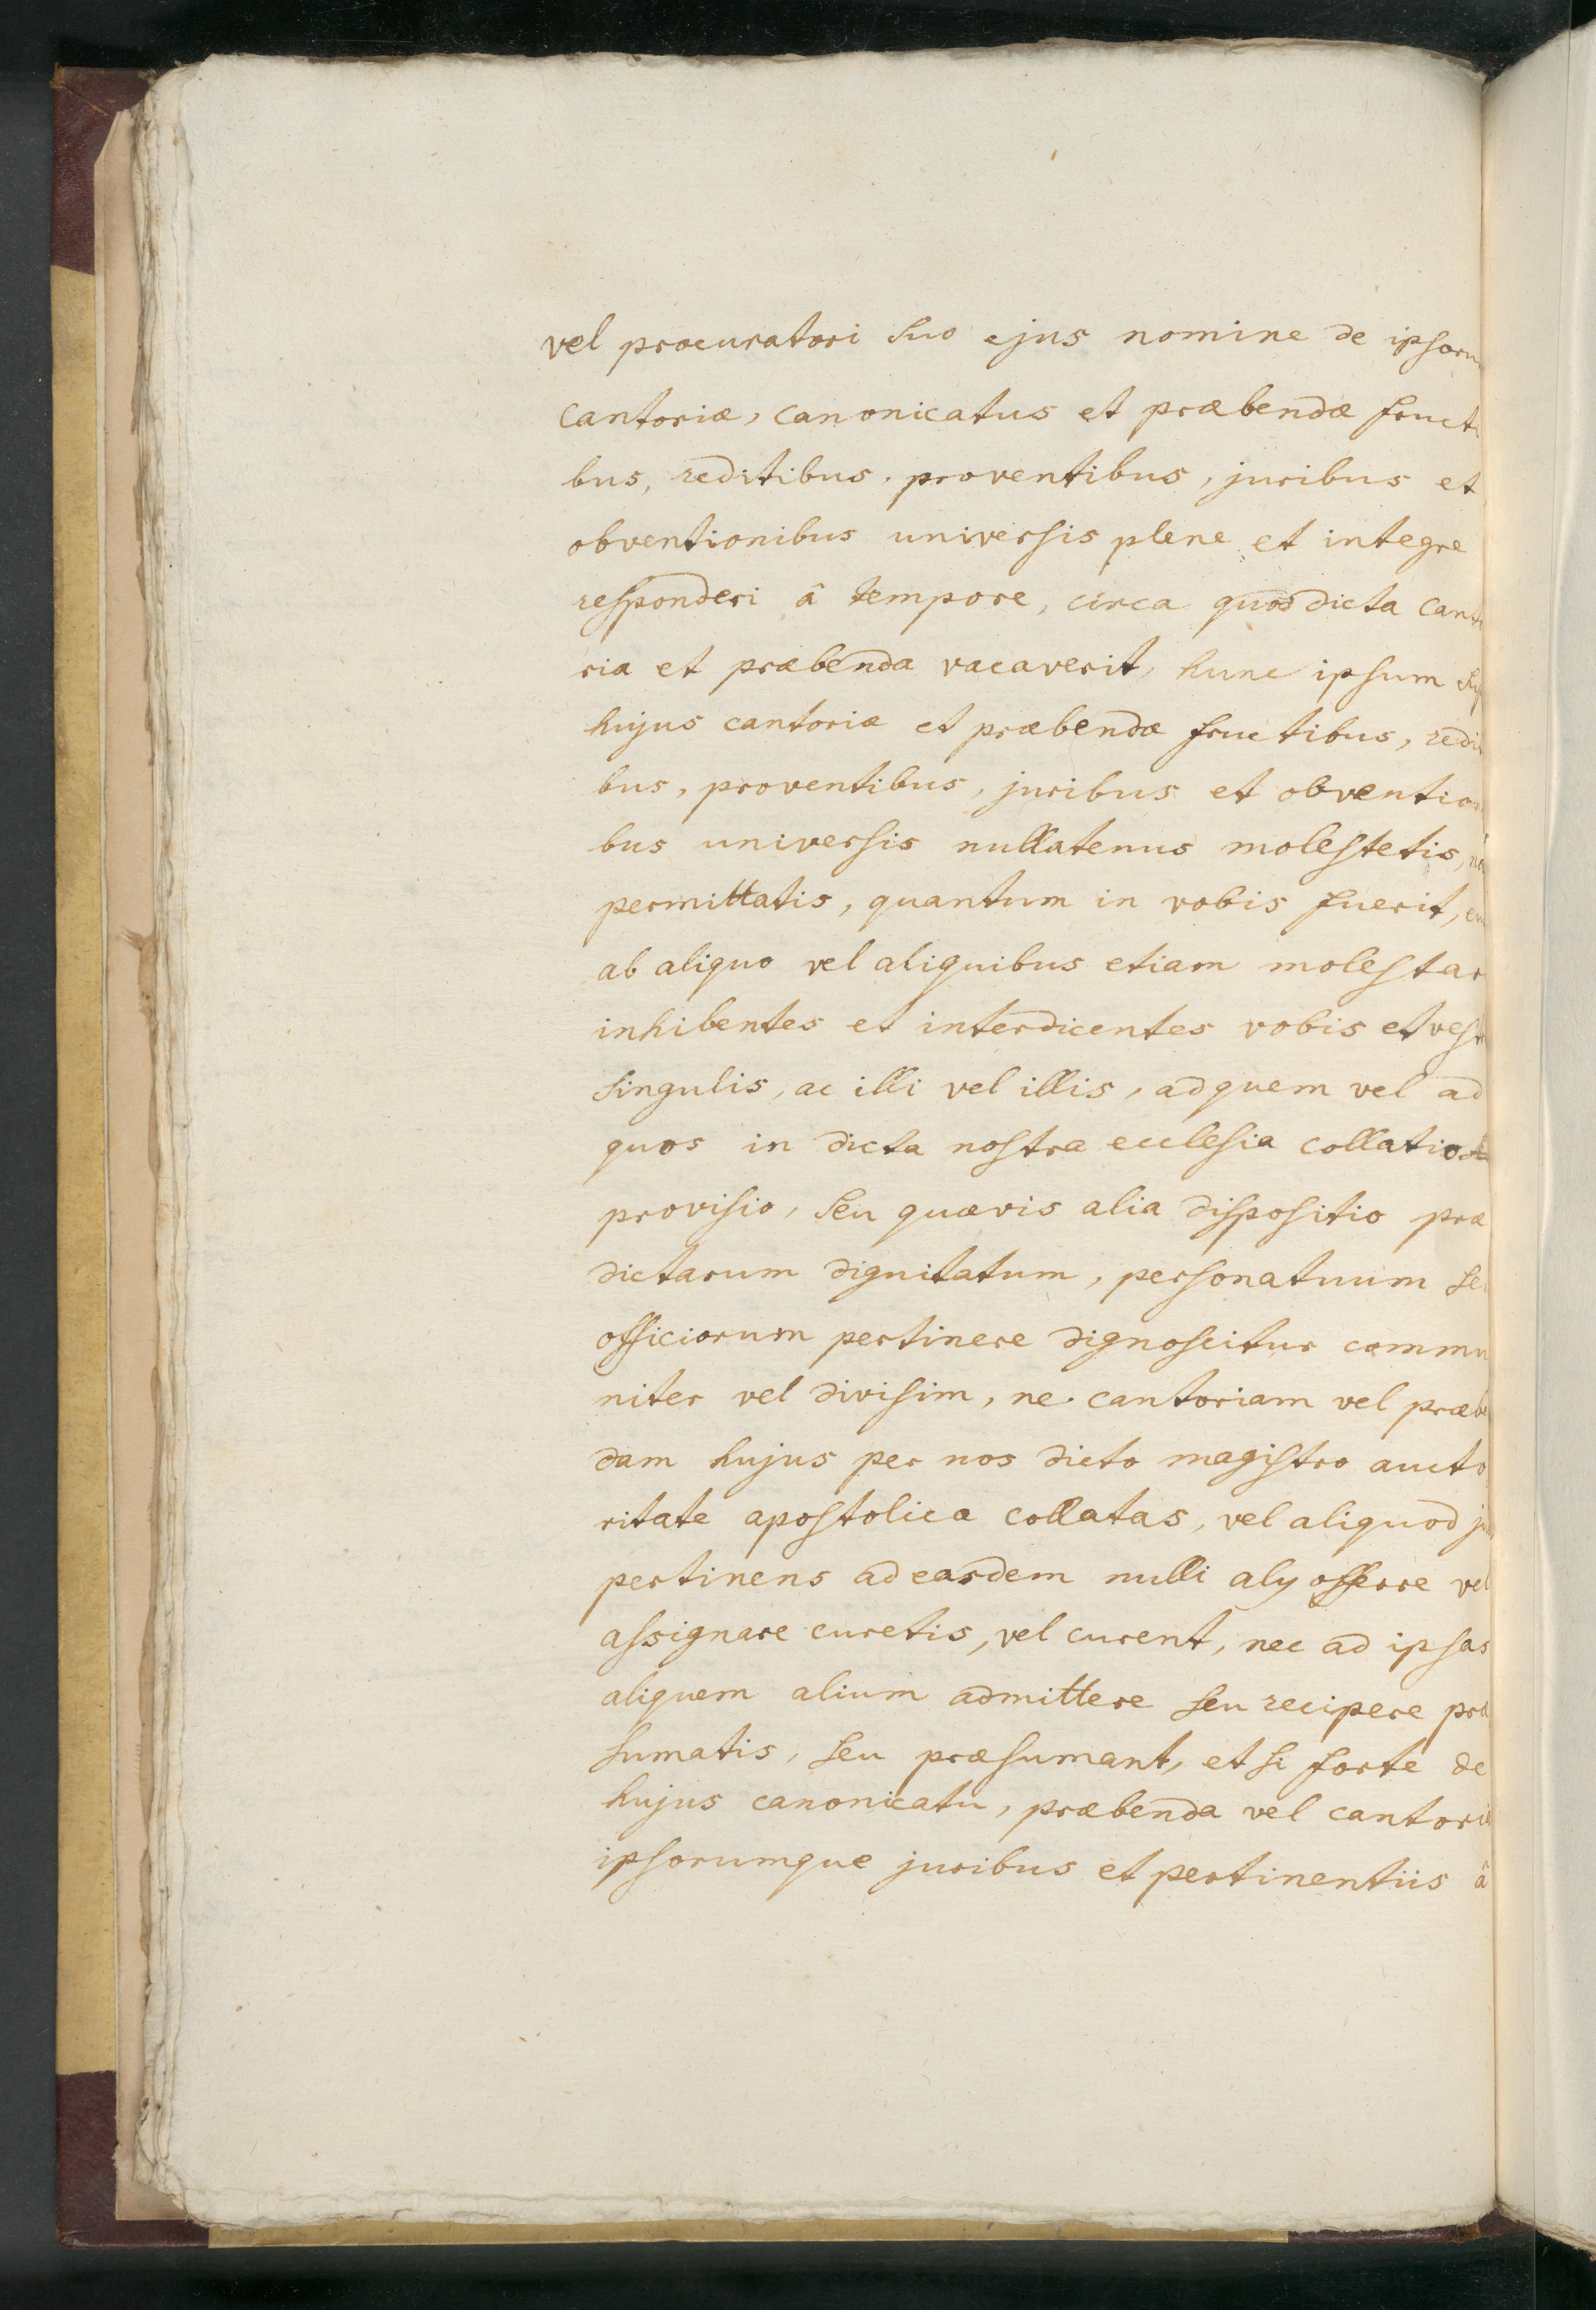 vel procuratori suo ejus nomine de ipsoru
cantoriæ, canonicatus et præbendæ fructi
bus, reditibus, proventibus, juribus et
obventionibus universis plene et integre
responderi â tempore, circa quod dicta canto
ria et præbenda vacaverit, hunc ipsum
hujus cantoriæ et præbendæ fructibus, redi
bus, proventibus, juribus et obvention
bus universis nullatenus molestetis,
permittatis, quantum in vobis fuerit,
ab aliquo vel aliquibus etiam molestar
inhibentes et interdicentes vobis et vest
singulis, ac illi vel illis, ad quem vel ad
quos in dicta nostra ecclesia collatio
provisio, seu quævis alia dispositio præ
dictarum dignitatum, personatuum seu
officiorum pertinere dignoscitur commu
niter vel divisim, ne cantoriam vel præbe
dam hujus per nos dicto magistro aucto
ritate apostolica collatas, vel aliquod ju
pertinens ad easdem nulli aly offerre vel
assignare curetis, vel curent, nec ad ipsas
aliquem alium admittere seu recipere præ
sumatis, seu præsumant, et si forte de
hujus canonicatu, præbenda vel cantoria
ipsorumque juribus et pertinentiis â